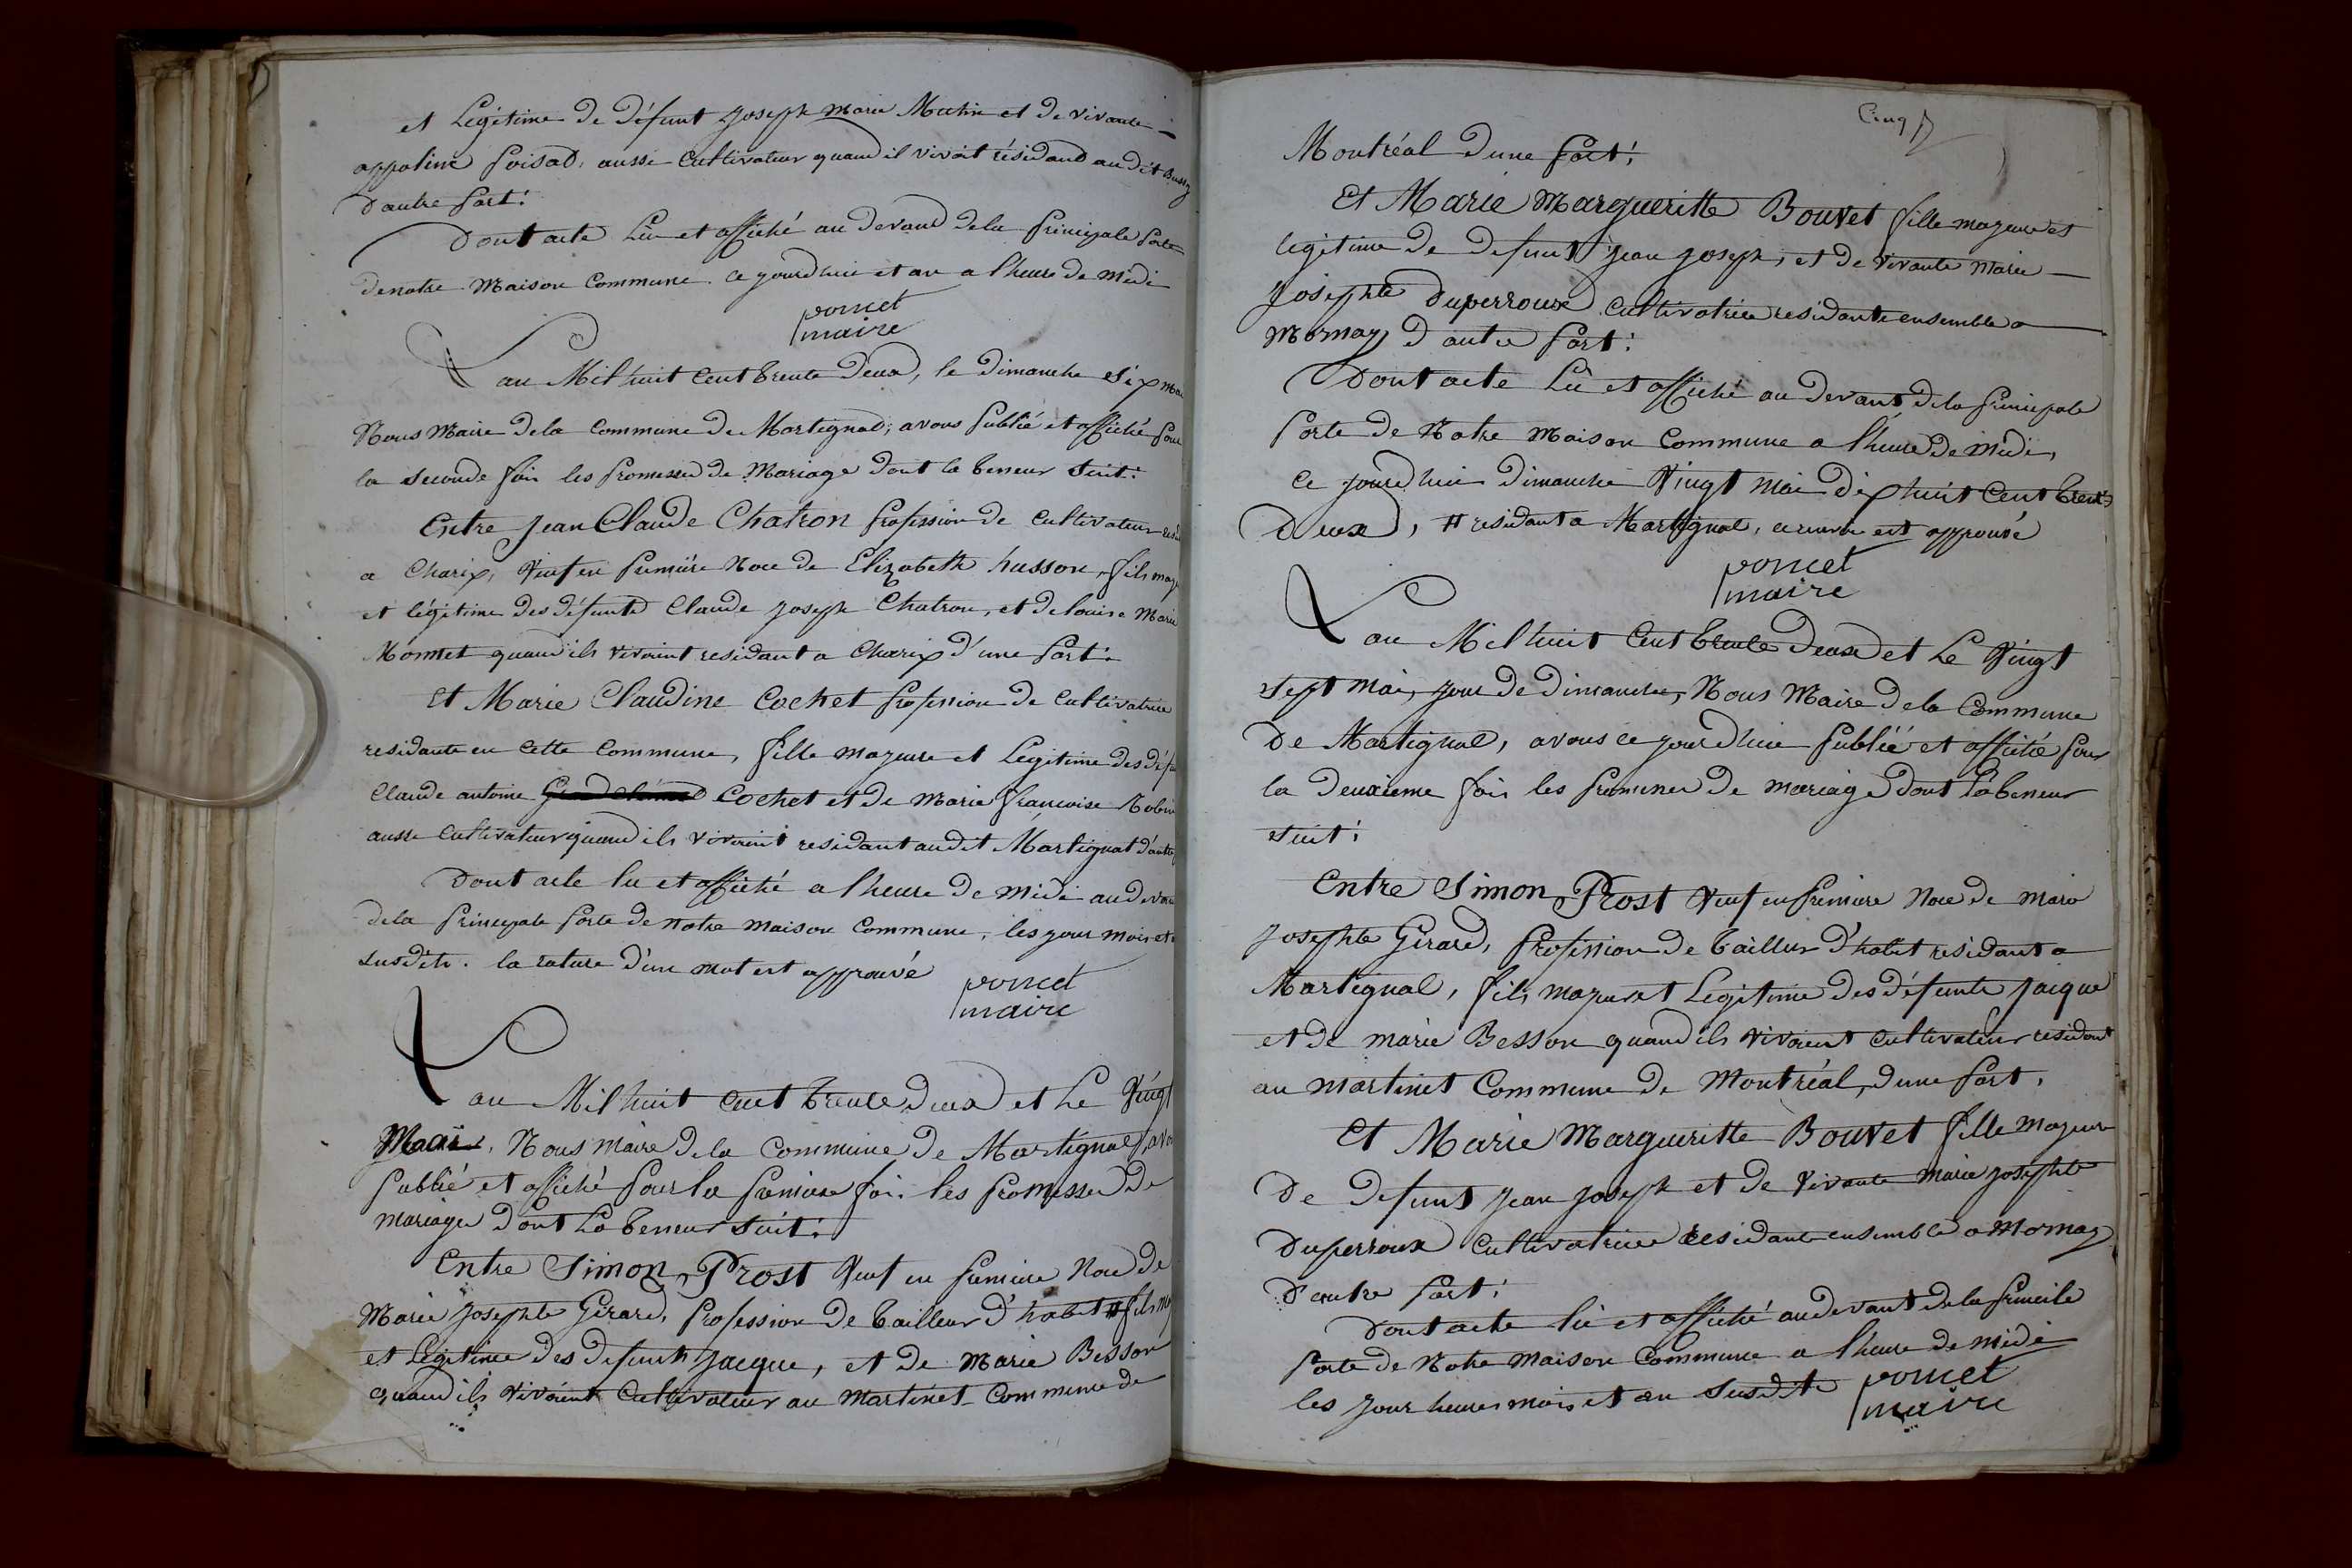 et Légitime de défunt Joseph Marie Mathie et de vivante
appoline Poisad, aussi Cultivateur quand il vivoit résidand au dit Bussy
d'autre part:
Dont acte Lû et affiché au devand dela principale Porte
de notre Maison Commune ce jourdhui et an a l'heure de midi
poncet
maire
Lan Mil huit Cent trente deux, le dimanche Six mai
Nous Maire dela Commune de Martignad, avons publié et affiché pour
la seconde fois les promesses de Mariage dont la teneur suit:
Entre Jean Claude Chatron profession de Cultivateur
a Charix, Veuf en première Noce de Elizabeth husson, fils maj
et légitime des défunts Claude Joseph Chatron, et de louise Marie
Monnet quand ils vivoint residant a Charix d'une part:
Et Marie Claudine Cochet profession de Cultivatrice
residante en cette Commune, fille majeure et Légitime des défu
Claude antoine Cochet et de Marie françoise Robin
aussi Cultivateur quand ils vivoint residant au dit Martignat d'autre
Dont acte lu et affiché a l'heure de midi au devan
dela principale porte de notre maison Commune, les jour mois et
susdits. la rature d'un mot est approuvé
poncet
maire
Lan Mil huit cent trente deux et Le Vingt
Mai, Nous Maire dela Commune de Martignad, avo
publié et affiché pour la première fois les promesses de
mariage dont La teneur suit:
Entre Simon Prost Veuf en première Noce de
Marie Josephte Girard, profession de tailleur d'habit # fils maj
et Légitime des defunts Jacque, et de Marie Besson
quand ils vivoint Cultivateur au Martinet Commune de
Cinq
Montréal dune part:
Et Marie Margueritte Bouvet fille majeure et
legitime de defunt Jean Joseph, et de vivante Marie
Josephte Duperroux Cultivatrice residante ensemble a
Mornay d'autre part:
Dont acte Lû et affiché au devant dela principale
porte de Notre Maison Commune a l'heure de midi,
Ce jourdhui dimanche Vingt mai dix huit Cent trente
Deux, # residant a Martignat, ce renvoi est approuvé
poncet
maire
Lan Mil huit Cent trente deux et Le Vingt
sept mai, jour de dimanche, Nous Maire dela Commune
De Martignad, avons ce jourdhui publié et affiché pour
la deuxieme fois les promesses de mariage dont la teneur
suit:
Entre Simon Prost Veuf en premiere Noce de Marie
Josephte Girard, profession de tailleur d'habit résidant a
Martignad, fils majeur et Legitime des défunts Jacque
et de marie Besson quand ils vivoient Cultivateur residant
au martinet Commune de Montréal, dune part,
Et Marie Margueritte Bouvet fille Majeure
De defunt Jean Joseph et de Vivante Marie Josephte
Duperroux Cultivatrice residante ensemble a Mornay
D'autre part:
Dont acte lû et affiché au devant dela princile
porte de Notre Maison Commune a l'heure de midi
les jour heures mois et an susdits
poncet
maire